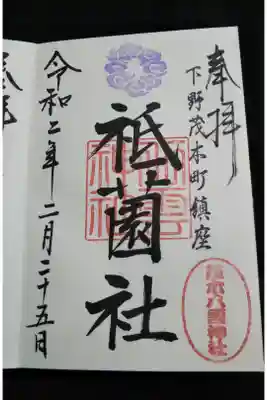 奉拝
下野茂木町鎮座
茂木八雲神社
祇園社
令和二年二月二十五日